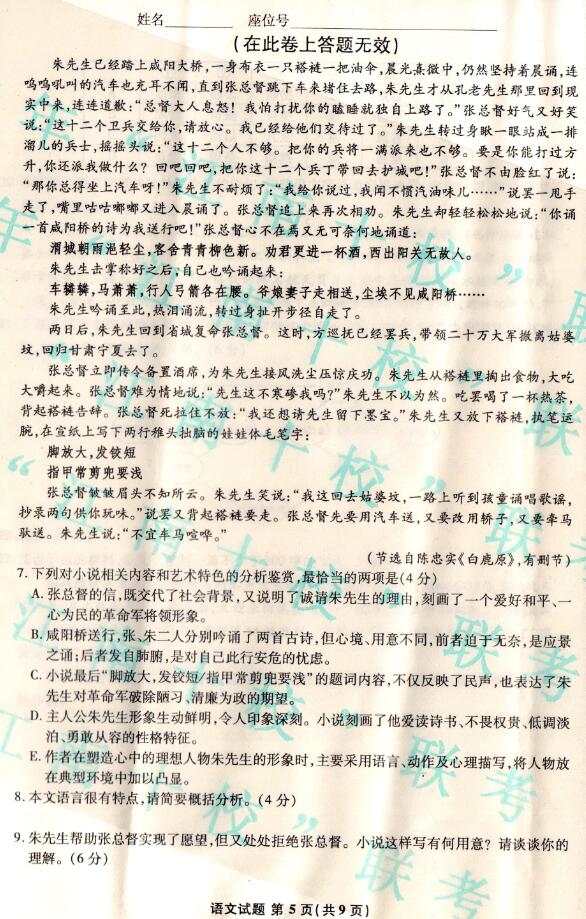 姓名 座位号
(在此卷上答题无效)
朱先生已经踏上咸阳大桥,一身布衣一只褡裢一把油伞,晨光熹微中,仍然坚持着晨诵,连
呜呜吼叫的汽车也充耳不闻,直到张总督跳下车来堵住去路,朱先生才从孔老先生那里回到现
实中来,连连道歉:“总督大人息怒!我怕打扰你的瞌睡就独自上路了。”张总督好气又好笑
说:“这十二个卫兵交给你,请放心。我已经给他们交待过了。”朱先生转过身瞅一眼站成一排
溜儿的兵士,摇摇头说:“这十二个人不够。把你的兵将一满派来也不够。要是你能打过方
升,你还派我做什么?回吧回吧,把你这十二个兵丁带回去护城吧!”张总督不由脸红了说:
“那你总得坐上汽车呀!”朱先生不耐烦了:“我给你说过,我闻不惯汽油味儿……”说罢一甩手
走了,嘴里咕咕嘟嘟又进入晨诵了。张总督追上来再次相劝。朱先生却轻轻松松地说:“你诵
一首咸阳桥的诗为我送行吧!”张总督心不在焉又无可奈何地诵道:
渭城朝雨浥轻尘,客舍青青柳色新。劝君更进一杯酒,西出阳关无故人。
朱先生击掌称好之后,自己也吟诵起来:
车辚辚,马萧萧,行人弓箭各在腰。爷娘妻子走相送,尘埃不见咸阳桥……
朱先生吟诵至此,热泪涌流,转过身扯开步径自走了。
两日后,朱先生回到省城复命张总督。这时,方巡抚已经罢兵,带领二十万大军撤离姑婆
坟,回归甘肃宁夏去了。
张总督立即传令备置酒席,为朱先生接风洗尘压惊庆功。朱先生从褡裢里掏出食物,大吃
大嚼起来。张总督难为情地说:“先生这不寒碜我吗?”朱先生不以为然。吃罢喝了一杯热茶,
背起褡裢告辞。张总督死拉住不放:“我还想请先生留下墨宝。”朱先生又放下褡裢,执笔运
腕,在宣纸上写下两行稚头拙脑的娃娃体毛笔字:
脚放大,发铰短
指甲常剪兜要浅
张总督皱皱眉头不知所云。朱先生笑说:“我这回去姑婆坟,一路上听到孩童诵唱歌谣,
抄录两句供你玩味。”说罢又背起褡裢要走。张总督先要用汽车送,又要改用轿子,又要牵马
驮送。朱先生说:“不宜车马喧哗。”
(节选自陈忠实《白鹿原》,有删节)
7.下列对小说相关内容和艺术特色的分析鉴赏,最恰当的两项是(4分)
A.张总督的信,既交代了社会背景,又说明了诚请朱先生的理由,刻画了一个爱好和平、一
心为民的革命军将领形象。
B.咸阳桥送行,张、朱二人分别吟诵了两首古诗,但心境、用意不同,前者迫于无奈,是应景
之诵;后者发自肺腑,是对自己此行安危的忧虑。
C.小说最后“脚放大,发铰短/指甲常剪兜要浅”的题词内容,不仅反映了民声,也表达了朱
先生对革命军破除陋习、清廉为政的期望。
D.主人公朱先生形象生动鲜明,令人印象深刻。小说刻画了他爱读诗书、不畏权贵、低调淡
泊、勇敢从容的性格特征。
E.作者在塑造心中的理想人物朱先生的形象时,主要采用语言、动作及心理描写,将人物放
在典型环境中加以凸显。
8.本文语言很有特点,请简要概括分析。(4分)
9.朱先生帮助张总督实现了愿望,但又处处拒绝张总督。小说这样写有何用意?请谈谈你的
理解。(6分)
语文试题 第5页(共9页)